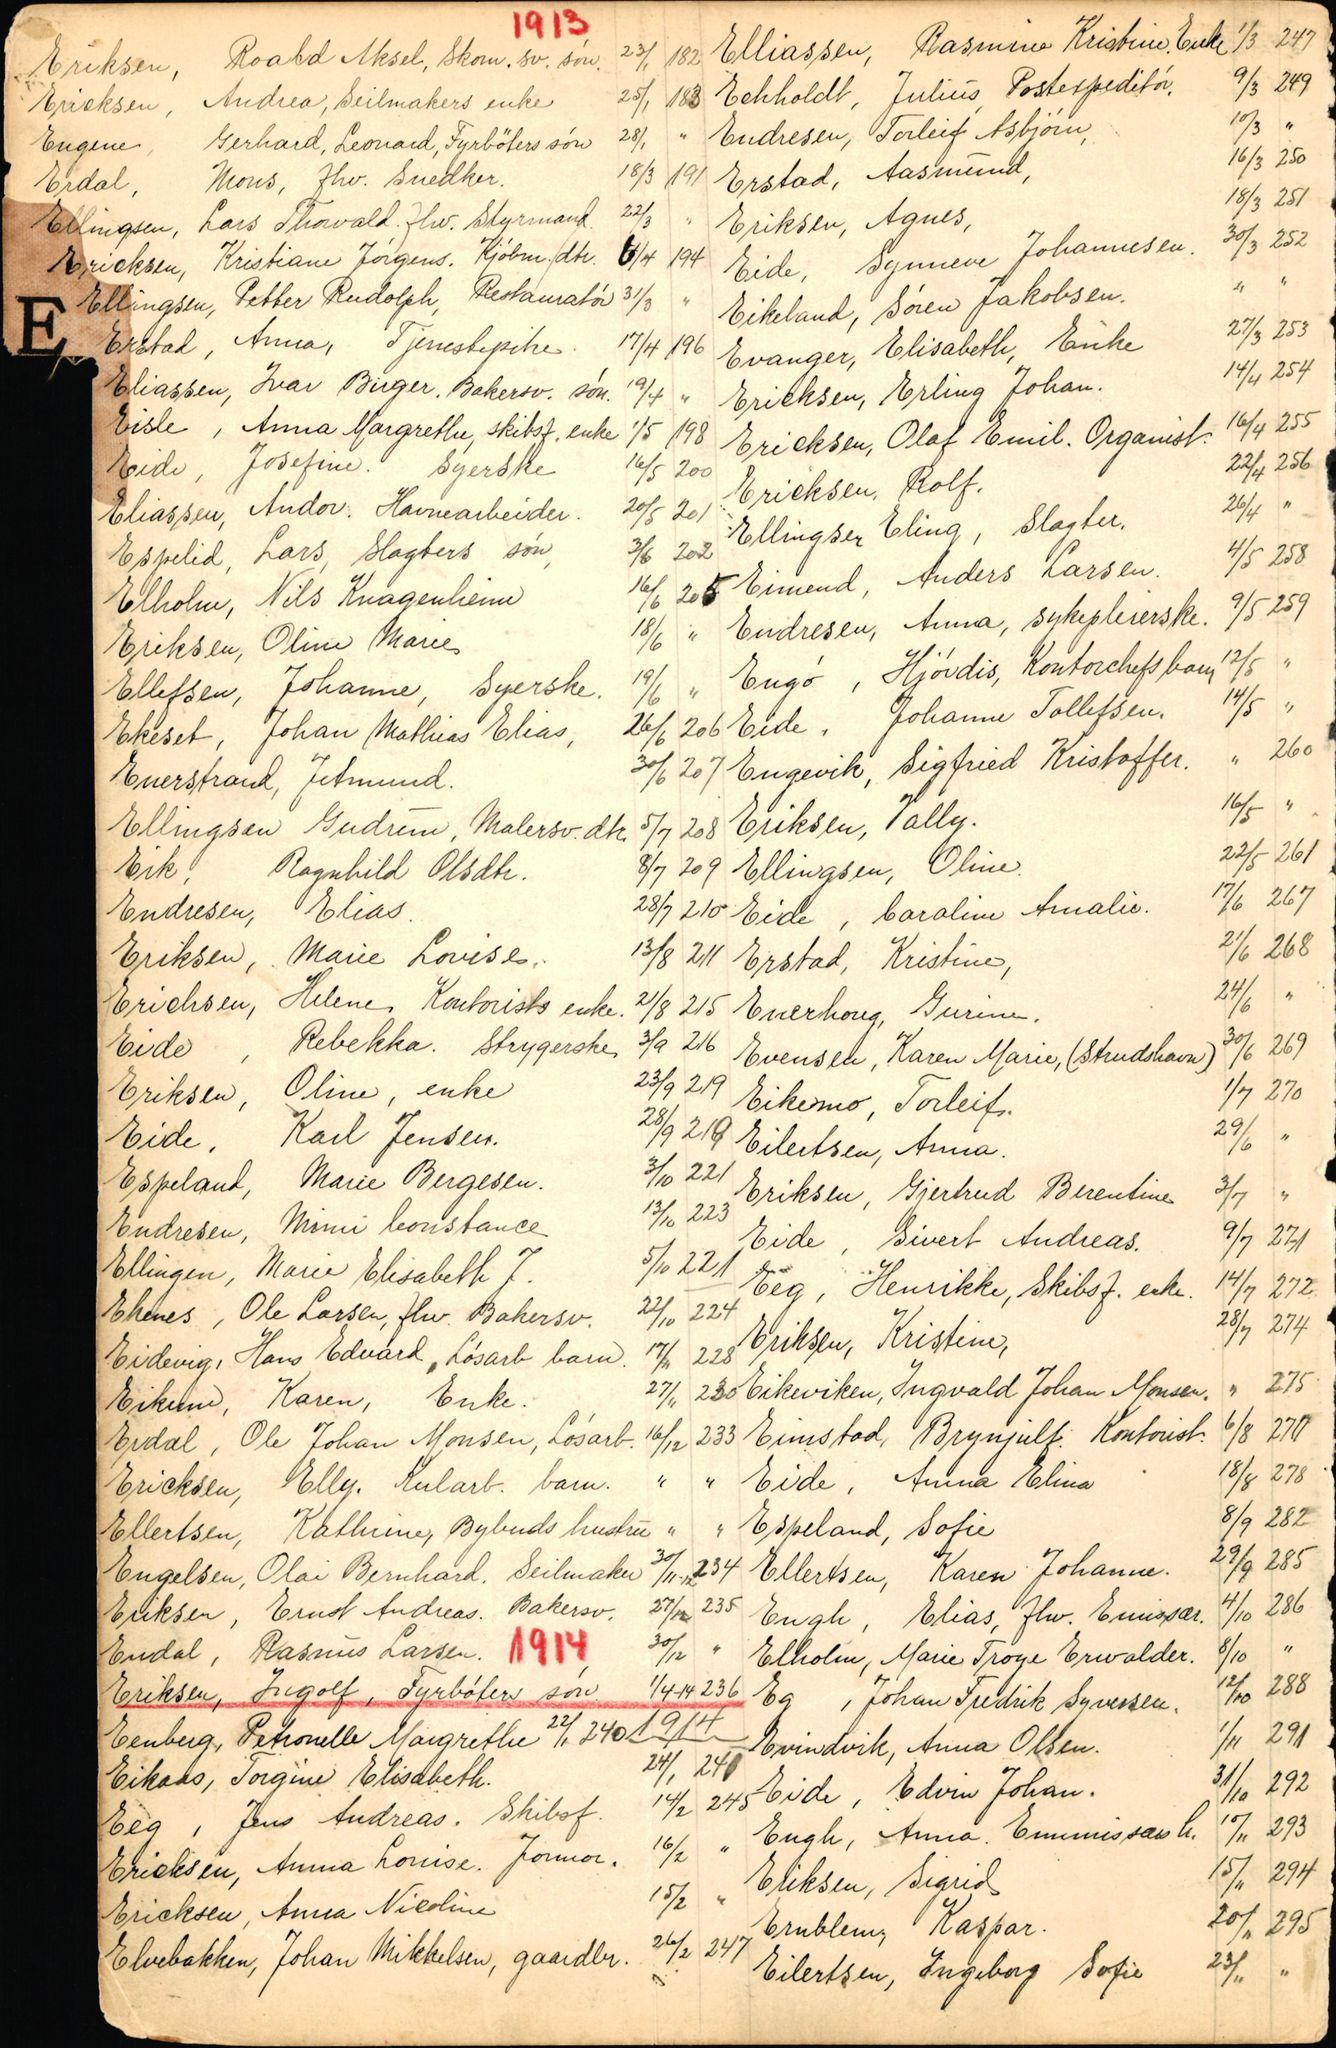 1913
Eriksen, Roald Aksel, Skom. sv. søn. 23/1 182
Ericksen, Andrea, Seilmakers enke 25/1 183
Eugene, Gerhard, Leonard, Fyrbøters søn 28/1 "
Erdal, Mons, fhv. Snedker. 18/3 191
Ellingsen, Lars Thorvald. fhv. Styrmand. 22/3 "
Ericksen, Kristiane Jørgens. Kjøbm. dtr. 1/4 194
E
Ellingsen, Petter Rudolph, Restauratør 31/3 "
Erstad, Anna, Tjenestepike. 17/4 196
Eliassen, Ivar Birger. Bakersv. søn. 19/4 "
Eisle, Anna Margrethe, skibsf. enke 1/5 198
Eide, Josefine. Syerske 16/5 200
Eliassen, Andor. Havnearbeider. 20/5 201
Espelid, Lars, Slagters søn, 3/6 202
Elholm, Nils Knagenhjelm 16/6 205
Eriksen, Oline Marie, 18/6 "
Ellefsen, Johanne, Syerske. 19/6 "
Ekeset, Johan Mathias Elias, 26/6 206
Enerstrand, Jetmund. 30/6 207
Ellingsen Gudrun, Malersv. dtr. 5/7 208
Eik, Ragnhild Olsdtr. 8/7 209
Endresen, Elias. 28/7 210
Eriksen, Marie Lovise. 13/8 211
Erichsen, Helene, Kontorists enke. 21/8 215
Eide, Rebekka. Strygerske, 3/9 216
Eriksen, Oline, enke 23/9 219
Eide, Karl Jensen. 28/9 219
Espeland, Marie Bergesen. 3/10 221
Endresen, Mimi Constance 13/10 223
Ellingen, Marie Elisabeth J. 5/10 221
Ekenes, Ole Larsen, fhv. Bakersv. 22/10 224
Eidevig, Hans Edvard, Løsarb barn. 17/11 228
Eikum, Karen, Enke. 27/11 230
Erdal, Ole Johan Monsen, Løsarb. 16/12 233
Ericksen, Elly. Kularb. barn. " "
Ellertsen, Kathrine, Bybuds hustru " "
Engelsen, Olai Bernhard. Seilmaker 30/11-12 234
Eriksen, Ernst Andreas. Bakersv. 27/12 235
Endal, Rasmus Larsen. 1914 30/12 "
Eriksen, Ingolf, Fyrbøters søn 1/4-14 236
Eenberg, Petronelle Margrethe 22/1 240 1914
Eikaas, Torgine Elisabeth. 24/1 240
Eeg, Jens Andreas. Skibsf. 14/2 245
Ericksen, Anna Louise. Jormor. 16/2 "
Ericksen, Anna Nicoline 15/2 "
Elvebakken, Johan Mikkelsen, gaardbr. 26/2 247
Elliassen, Rasmine Kristine. Enke 1/3 247
Echholdt, Julius, Postexpeditør. 9/3 249
Endresen, Torleif Asbjørn, 10/3 "
Erstad, Aasmund, 16/3 250
Eriksen, Agnes, 18/3 251
Eide, Synneve Johannesen. 30/3 252
Eikeland, Søren Jakobsen. " "
Evanger, Elisabeth, Enke 27/3 253
Ericksen, Erling Johan. 14/4 254
Ericksen, Olaf Emil. Organist. 16/4 255
Ericksen, Rolf. 22/4 256
Ellingsen Eling, Slagter. 26/4 "
Eimend, Anders Larsen. 4/5 258
Endresen, Anna, sykepleierske. 9/5 259
Engø, Hjørdis, Kontorchefs barn 12/5 "
Eide, Johanne Tollefsen. 14/5 "
Engevik, Sigfried Kristoffer. " 260
Eriksen, Vally. 16/5 "
Ellingsen, Oline. 22/5 261
Eide, Caroline Amalie. 17/6 267
Erstad, Kristine, 21/6 268
Enerhoug, Gurine. 24/6 "
Evensen, Karen Marie, (Strudshavn) 30/6 269
Eikemo, Torleif. 1/7 270
Eilertsen, Anna. 29/6 "
Eriksen, Gjertrud Berentine 3/7 "
Eide, Sivert Andreas. 9/7 271
Eeg, Henrikke, Skibsf. enke. 14/7 272
Eriksen, Kristine, 28/7 274
Eikeviken, Ingvald Johan Monsen. " 275
Eimstad, Brynjulf. Kontorist. 6/8 277
Eide, Anna Elina 18/8 278
Espeland, Sofie 8/9 282
Ellertsen, Karen Johanne. 29/9 285
Engh, Elias, fhv. Emissær. 4/10 286
Elholm, Marie Troye Erwalder. 8/10 "
Eg, Johan Fredrik Syversen. 12/10 288
Evindvik, Anna Olsen. 1/11 291
Eide, Edvin Johan. 31/10 292
Engh, Anna. Emmissærs h. 10/11 293
Eriksen, Sigrid 15/11 294
Erublem, Kaspar. 20/11 295
Eilertsen, Ingeborg Sofie 23/11 "